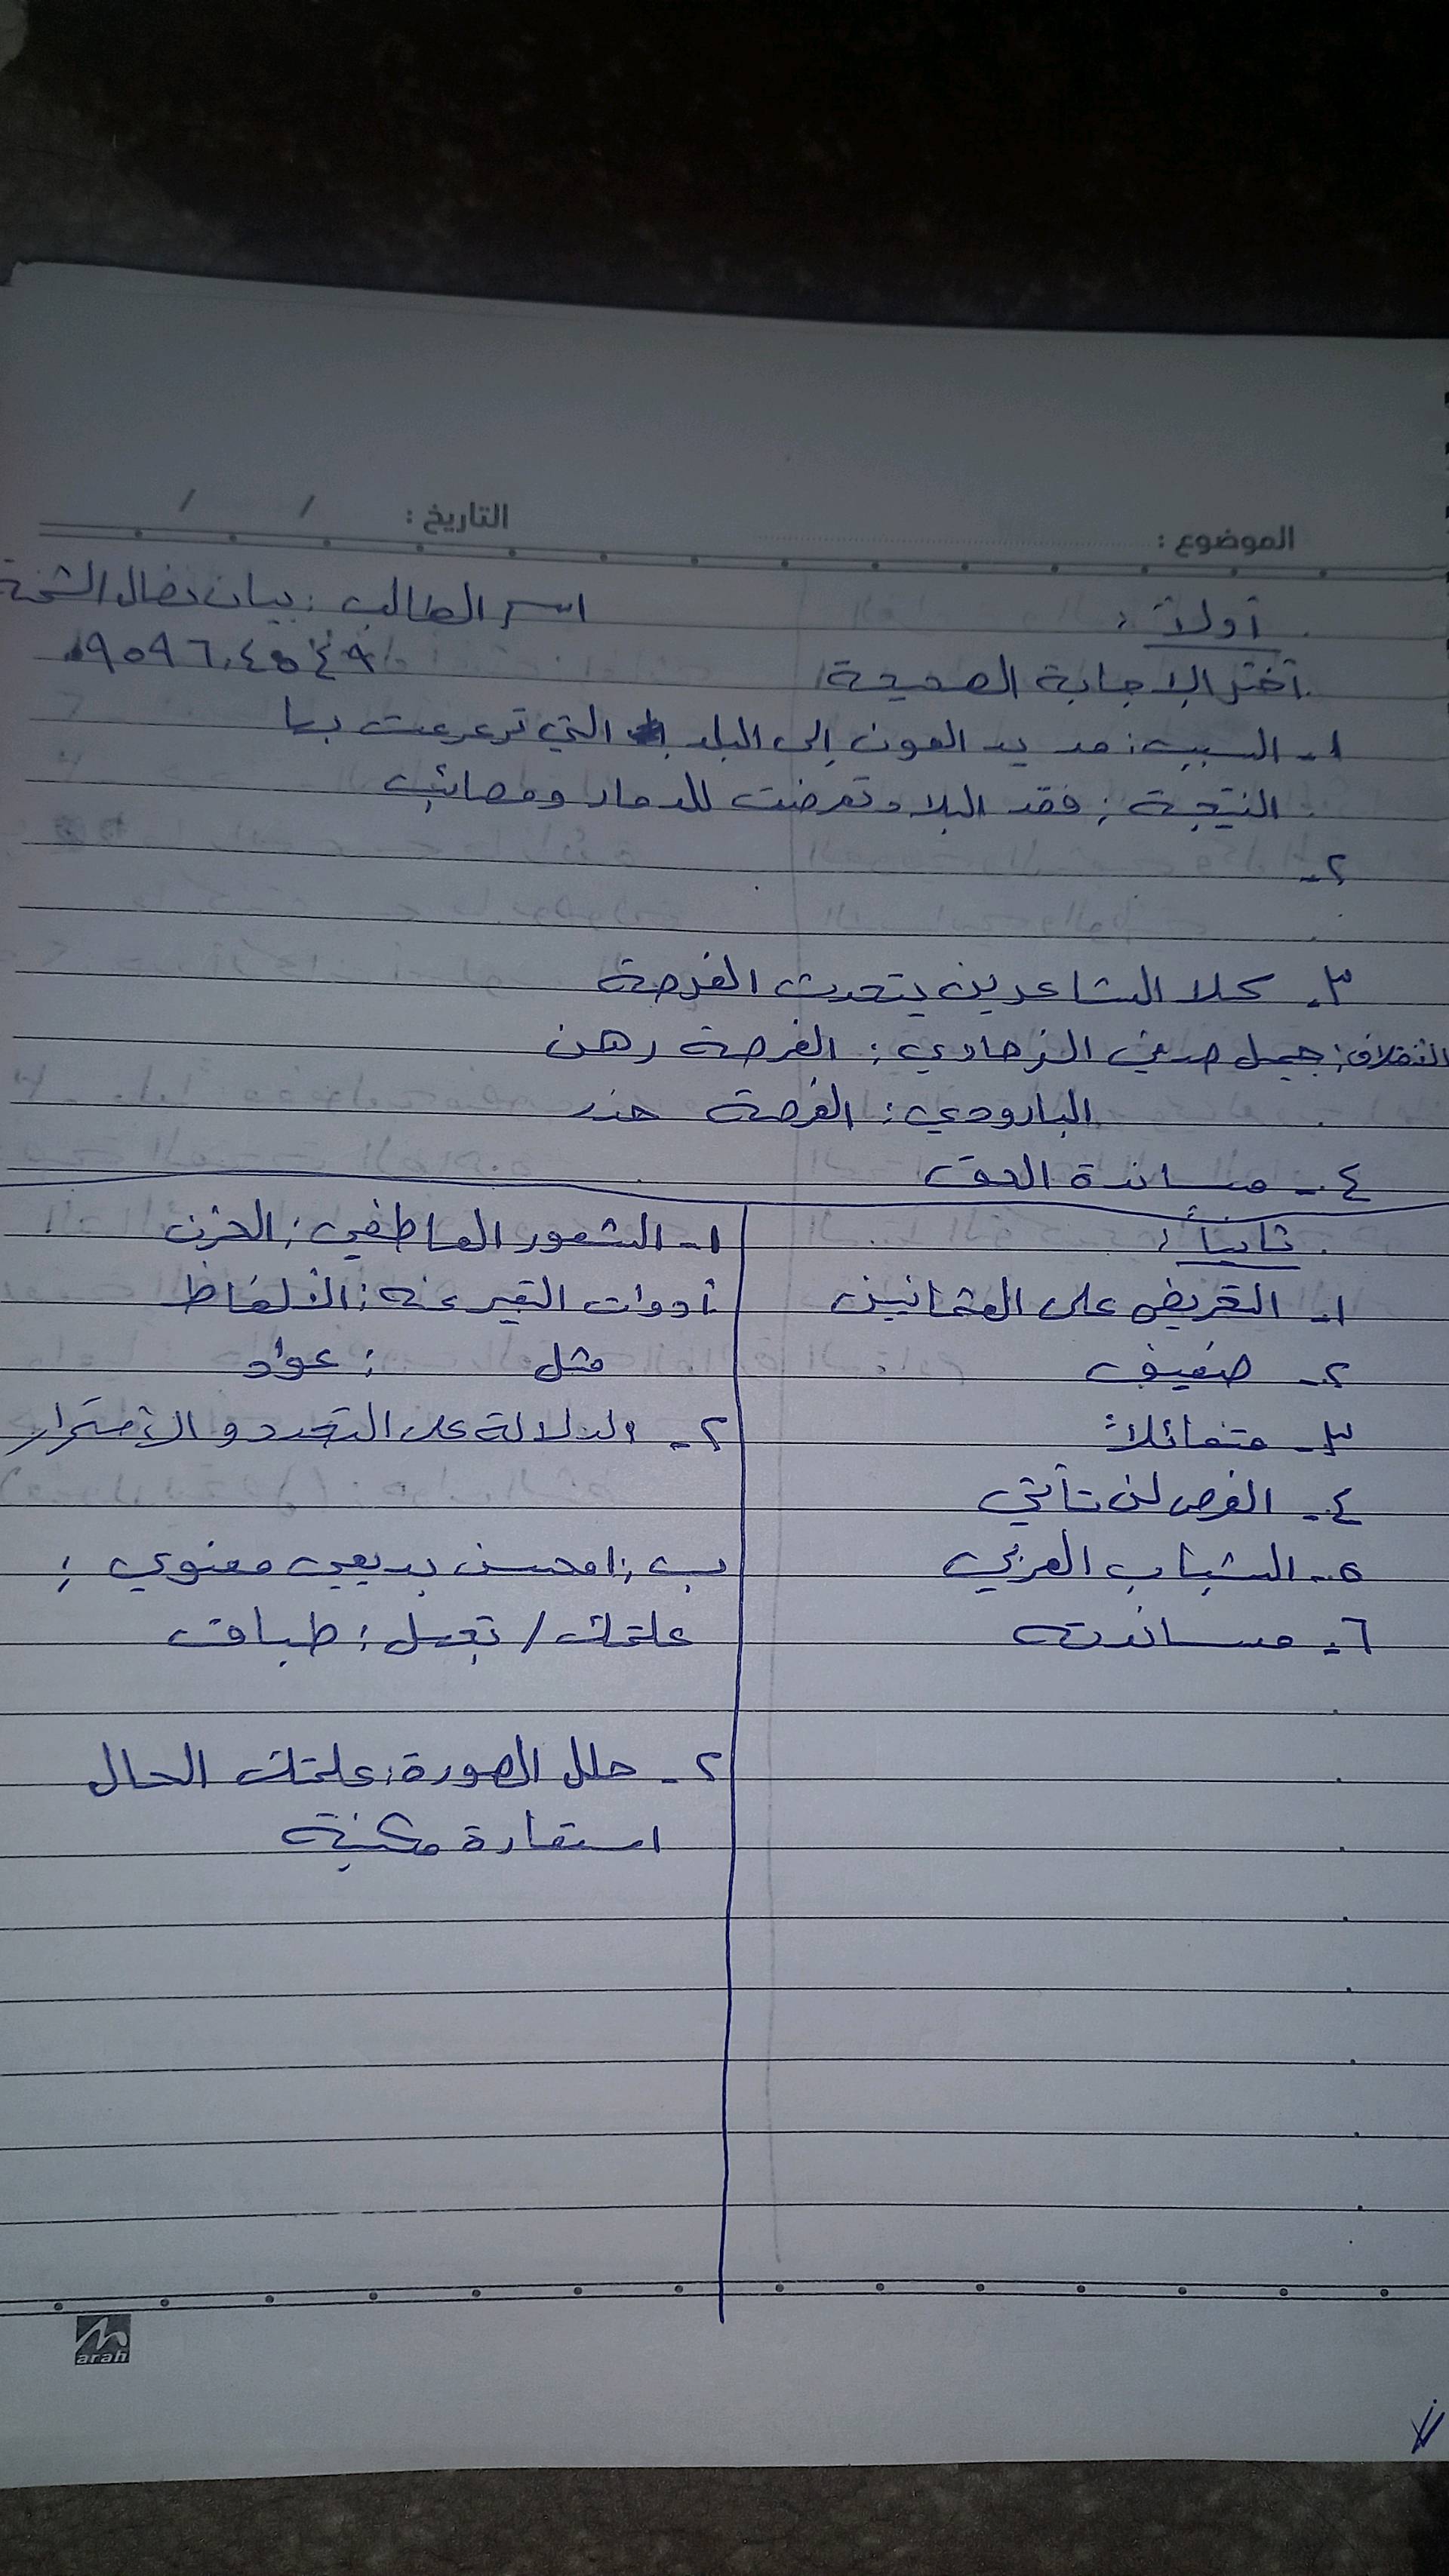 الموضوع :
التاريخ : / /
أولاً :
اسم الطالب : بيان نضال الشحنة
أختر الإجابة الصحيحة
١- السبب : مد يد العون إلى البلد التي ترعرعت بها
النتيجة : فقد البلاد تعرضت للدمار ومصائب
٢-
٣- كلا الشاعرين يتحدث الفرصة
جميل صدقي الزهاوي : الفرصة رهن
البارودي : الفرصة
٤- مساندة الحق
ثانياً :
١- التحريض على العثمانين
٢- ضعيف
٣- متفائلاً
٤- الفرص لن تأتي
٥- الشباب العربي
٦- مساندته
١- الشعور العاطفي : الحزن
أدوات التعبير عنه : الألفاظ
مثل : عواد
٢- ولدلالة على التجدد والأستمرار
ب : امحسن بديعي معنوي :
علمتك / تجهل : طباق
٢- حلل الصورة : علمتك الحال
استعارة مكنية
arah